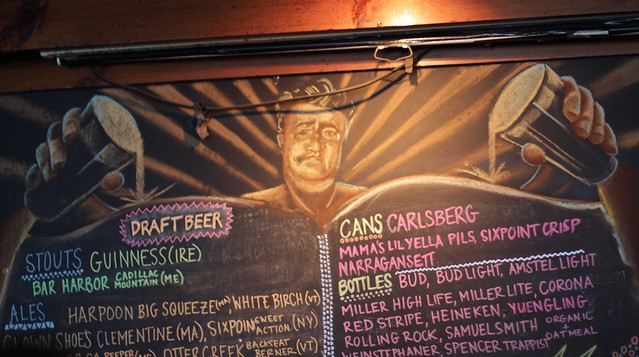 DRAFT BEER
STOUTS GUINNESS (IRE)
BAR HARBOR CADILLAC MOUNTAIN (ME)
ALES HARPOON BIG SQUEEZE (MA), WHITE BIRCH (VT)
CLOWN SHOES CLEMENTINE (MA), SIXPOINT SWEET ACTION (NY)
OTTER CREEK BACKSEAT BERNER (VT)
CANS CARLSBERG
MAMA'S LIL YELLA PILS, SIXPOINT CRISP
NARRAGANSETT
BOTTLES BUD, BUD LIGHT, AMSTEL LIGHT
MILLER HIGH LIFE, MILLER LITE, CORONA
RED STRIPE, HEINEKEN, YUENGLING
ROLLING ROCK, SAMUEL SMITH ORGANIC + OATMEAL
WEINSTEPHANER, SPENCER TRAPPIST